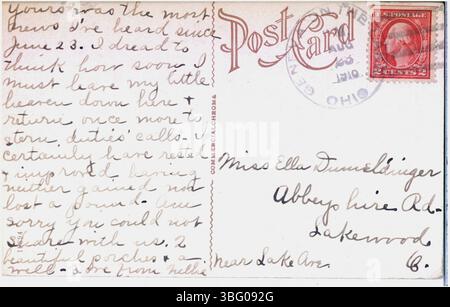 Yours was the most
news I've heard since
June 23. I dread to
think how soon I
must leave my little
heaven down here +
return once more to
stern duties' calls. I
certainly have rested
+ improved having
neither gained nor
lost a pound. Am
sorry you could not
share with us 2
beautiful porches + a
well - Love from Nellie
Post Card
COMMERCIALCHROME
GENEVA ON THE
AUG
23
OHIO
U.S. POSTAGE
2 CENTS 2
Miss Ella Dumeldinger
Abbeyshire Rd-
Lakewood
Near Lake Ave.
O.
alamy
Image ID: 3BG092G
www.alamy.com